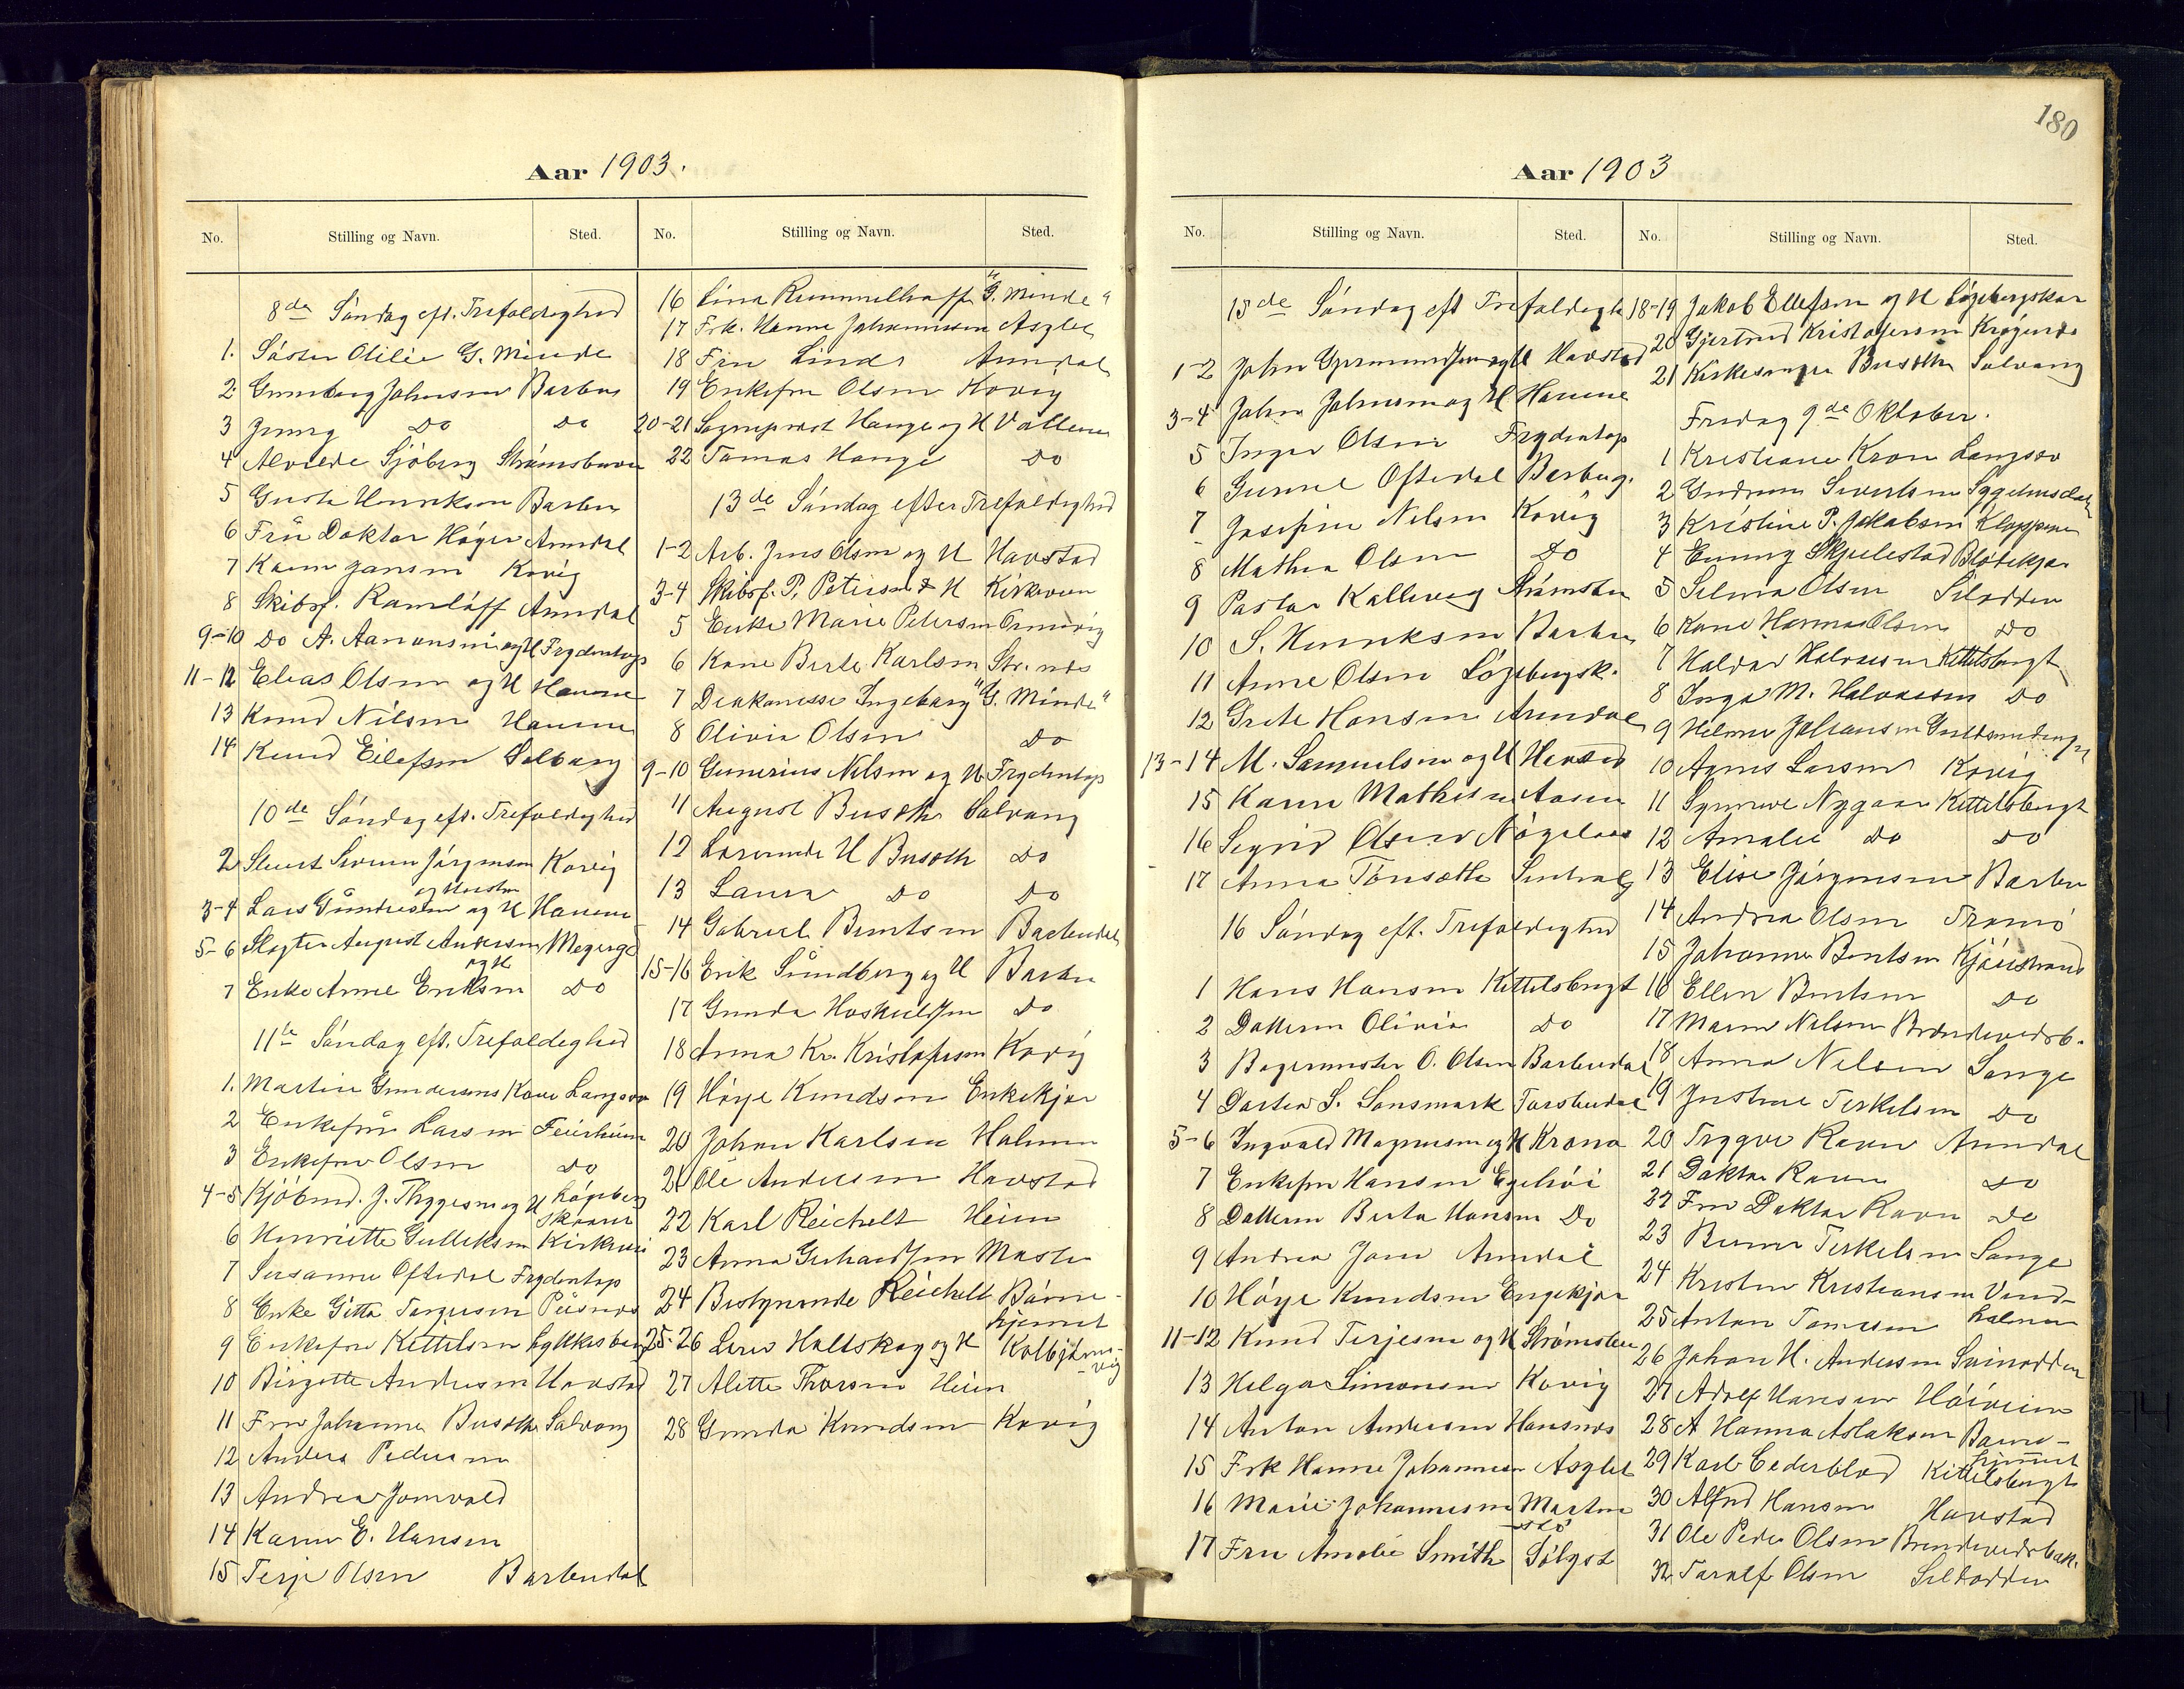 180
Aar 1903.
No. Stilling og Navn. Sted. No. Stilling og Navn. Sted.
8de Söndag eft. Trefoldighed
1. Söster Otilie G. Minde
2 Gunnborg Johnsen Barbu
3 Jenny Do Do
4 Alvilde Sjöberg Strömsbuen
5 Gusta Henriksen Barbu
6 Frú Doktor Höyer Arendal
7 Karen Jansen Kovig
8 Skibsf. Ramlöff Arendal
9-10 Do A. Aanonsen og H Frydentop
11-12 Elias Olsen og H Havene
13 Knud Nilsen Havene
14 Knud Eilefsen Solborg
10de Söndag eft. Trefoldighed
2 Stuert Severin Jörgensen Kovig
og Hustru
3-4 Lars Gundersen og H Havene
5-6 Slagter August Andersen Megergd
og H
7 Enke Anne Eriksen Do
11te Söndag eft. Trefoldighed
1. Martin Gundersens Kone Langsæ
2 Enkefru Larsen Feierheien
3 Enkefru Olsen do
4-5 Kjöbmd. J. Thygesen og H Lögeberg
skaaret
6 Henriette Gulleksen Kirkevei
7 Susanne Oftedal Frydentop
8 Enke Gitta Torgersen
9 Enkefru Kettelsen Lykkesborg
10 Birgitte Andersen Havstad
11 Fru Johanne Busoth Salvang
12 Anders Pedersen
13 Andrea Jomvold
14 Karen E. Hansen
15 Terje Olsen Barbudal
16 Lina Rummelhoff "G. Minde"
17 Frk. Hanne Johannessen Asylet
18 Fru Linds Arendal
19 Enkefru Olsen Kovig
20-21 Sogneprest Hauge og H Vollene
22 Tomas Hauge Do
13de Söndag efter Trefoldighed
1-2 Arb. Jens Olsen og H Havstad
3-4 Skibsf. P. Petersen & H Kirkeveien
5 Enke Marie Petersen
6 Kone Berte Karlsen Str. næs
7 Diakonisse Ingeborg "G. Minde"
8 Olivia Olsen Do
9-10 Gunerius Nilsen og H Frydentop
11 August Busoth Salvang
12 H Busoth Do
13 Laura Do Do
14 Gabriel Berntsen Barbudal
15-16 Erik Sundberg og H Barbu
17 Gunda Hoskuldsen Do
18 Anna Kr. Kristofersen Kovig
19 Höye Knudsen Enkekjær
20 Johan Karlsen Holmen
21 Ole Andersen Havstad
22 Karl Reichelt Heien
23 Anna Gerhardsen
24 Bestyrerinde Reichelt Börne-
hjemmet
25-26 Lars Holtskog og H Kolbjörns-
vig
27 Alette Thorsen Heien
28 Gunda Knudsen Kovig
Aar 1903
No. Stilling og Navn. Sted. No. Stilling og Navn. Sted.
15de Söndag eft Trefoldighe
1-2 John Gjermundsen og H Havstad
3-4 John Johnsen og H Havene
5 Inger Olsen Frydentop
6 Gunnel Oftedal Barbug.
7 Josefine Nilsen Kovig
8 Mathea Olsen Do
9 Pastor Kallevig Strömsbu
10 S. Henriksen Barbu
11 Anne Olsen Lögebergsk.
12 Grete Hansen Arendal
13-14 M. Samuelsen og H Havstad
15 Karen Mathisen Aasen
16 Sigrid Olsen
17 Anna Tönsæth
16 Söndag eft. Trefoldighed
1 Hans Hansen Kettelsbugt
2 Datteren Olivia Do
3 Bagermester O. Olsen Barbudal
4 S. Lonsmark Torsbudal
5-6 Ingvald Magnussen og H Krona
7 Enkefru Hansen Egehöi
8 Datteren Berta Hansen Do
9 Andrea Jans Arendal
10 Höye Knudsen Engekjær
11-12 Knud Terjesen og H Strömsbu
13 Helga Simonsen Kovig
14 Anton Andersen Hansnæs
15 Frk Hanne Johannesen Asylet
16 Marie Johannesen
17 Fru Amalie Smith
18-19 Jakob Ellefsen og H Lögebergskar
20 Gjertrud Kristofersen Krögenæs
21 Kirkesanger Busoth Solvang
Fredag 9de Oktober.
1 Kristiane Kron Langsæ
2 Gudrun Sivertsen Sygehusdalen
3 Kristine P. Jakobsen Kloppene
4 Emmy Skjulestad Blödekjær
5 Selma Olsen Silodden
6 Kone Hanna Olsen Do
7 Haldor Halvorsen Kettelsbugt
8 Inga M. Halvorsen Do
9 Helene Johansen Guldsmedengen
10 Agnes Larsen Kovig
11 Synneve Nygaar Kettelsbugt
12 Amalie Do Do
13 Elise Jörgensen Barbu
14 Andrea Olsen Tromö
15 Johanne Berntsen Kjörstrand
16 Ellen Berntsen Do
17 Maren Nilsen Brændevedsb.
18 Anna Nilsen Songe
19 Justine Terkelsen Do
20 Trygve Ravn Arendal
21 Doktor Ravn Do
22 Fru Doktor Ravn Do
23 Terkelsen Songe
24 Kristen Kristiansen Vind-
holmen
25 Anton Tomesen
26 Johan H. Andersen Svinodden
27 Adolf Hansen Höiveien
28 A Hanna Aslaksen Barne-
hjemmet
29 Karl Cederblad Kittelsbugt
30 Alfred Hansen Havstad
31 Ole Peder Olsen Brændevedsbak.
32 Toralf Olsen Silodden